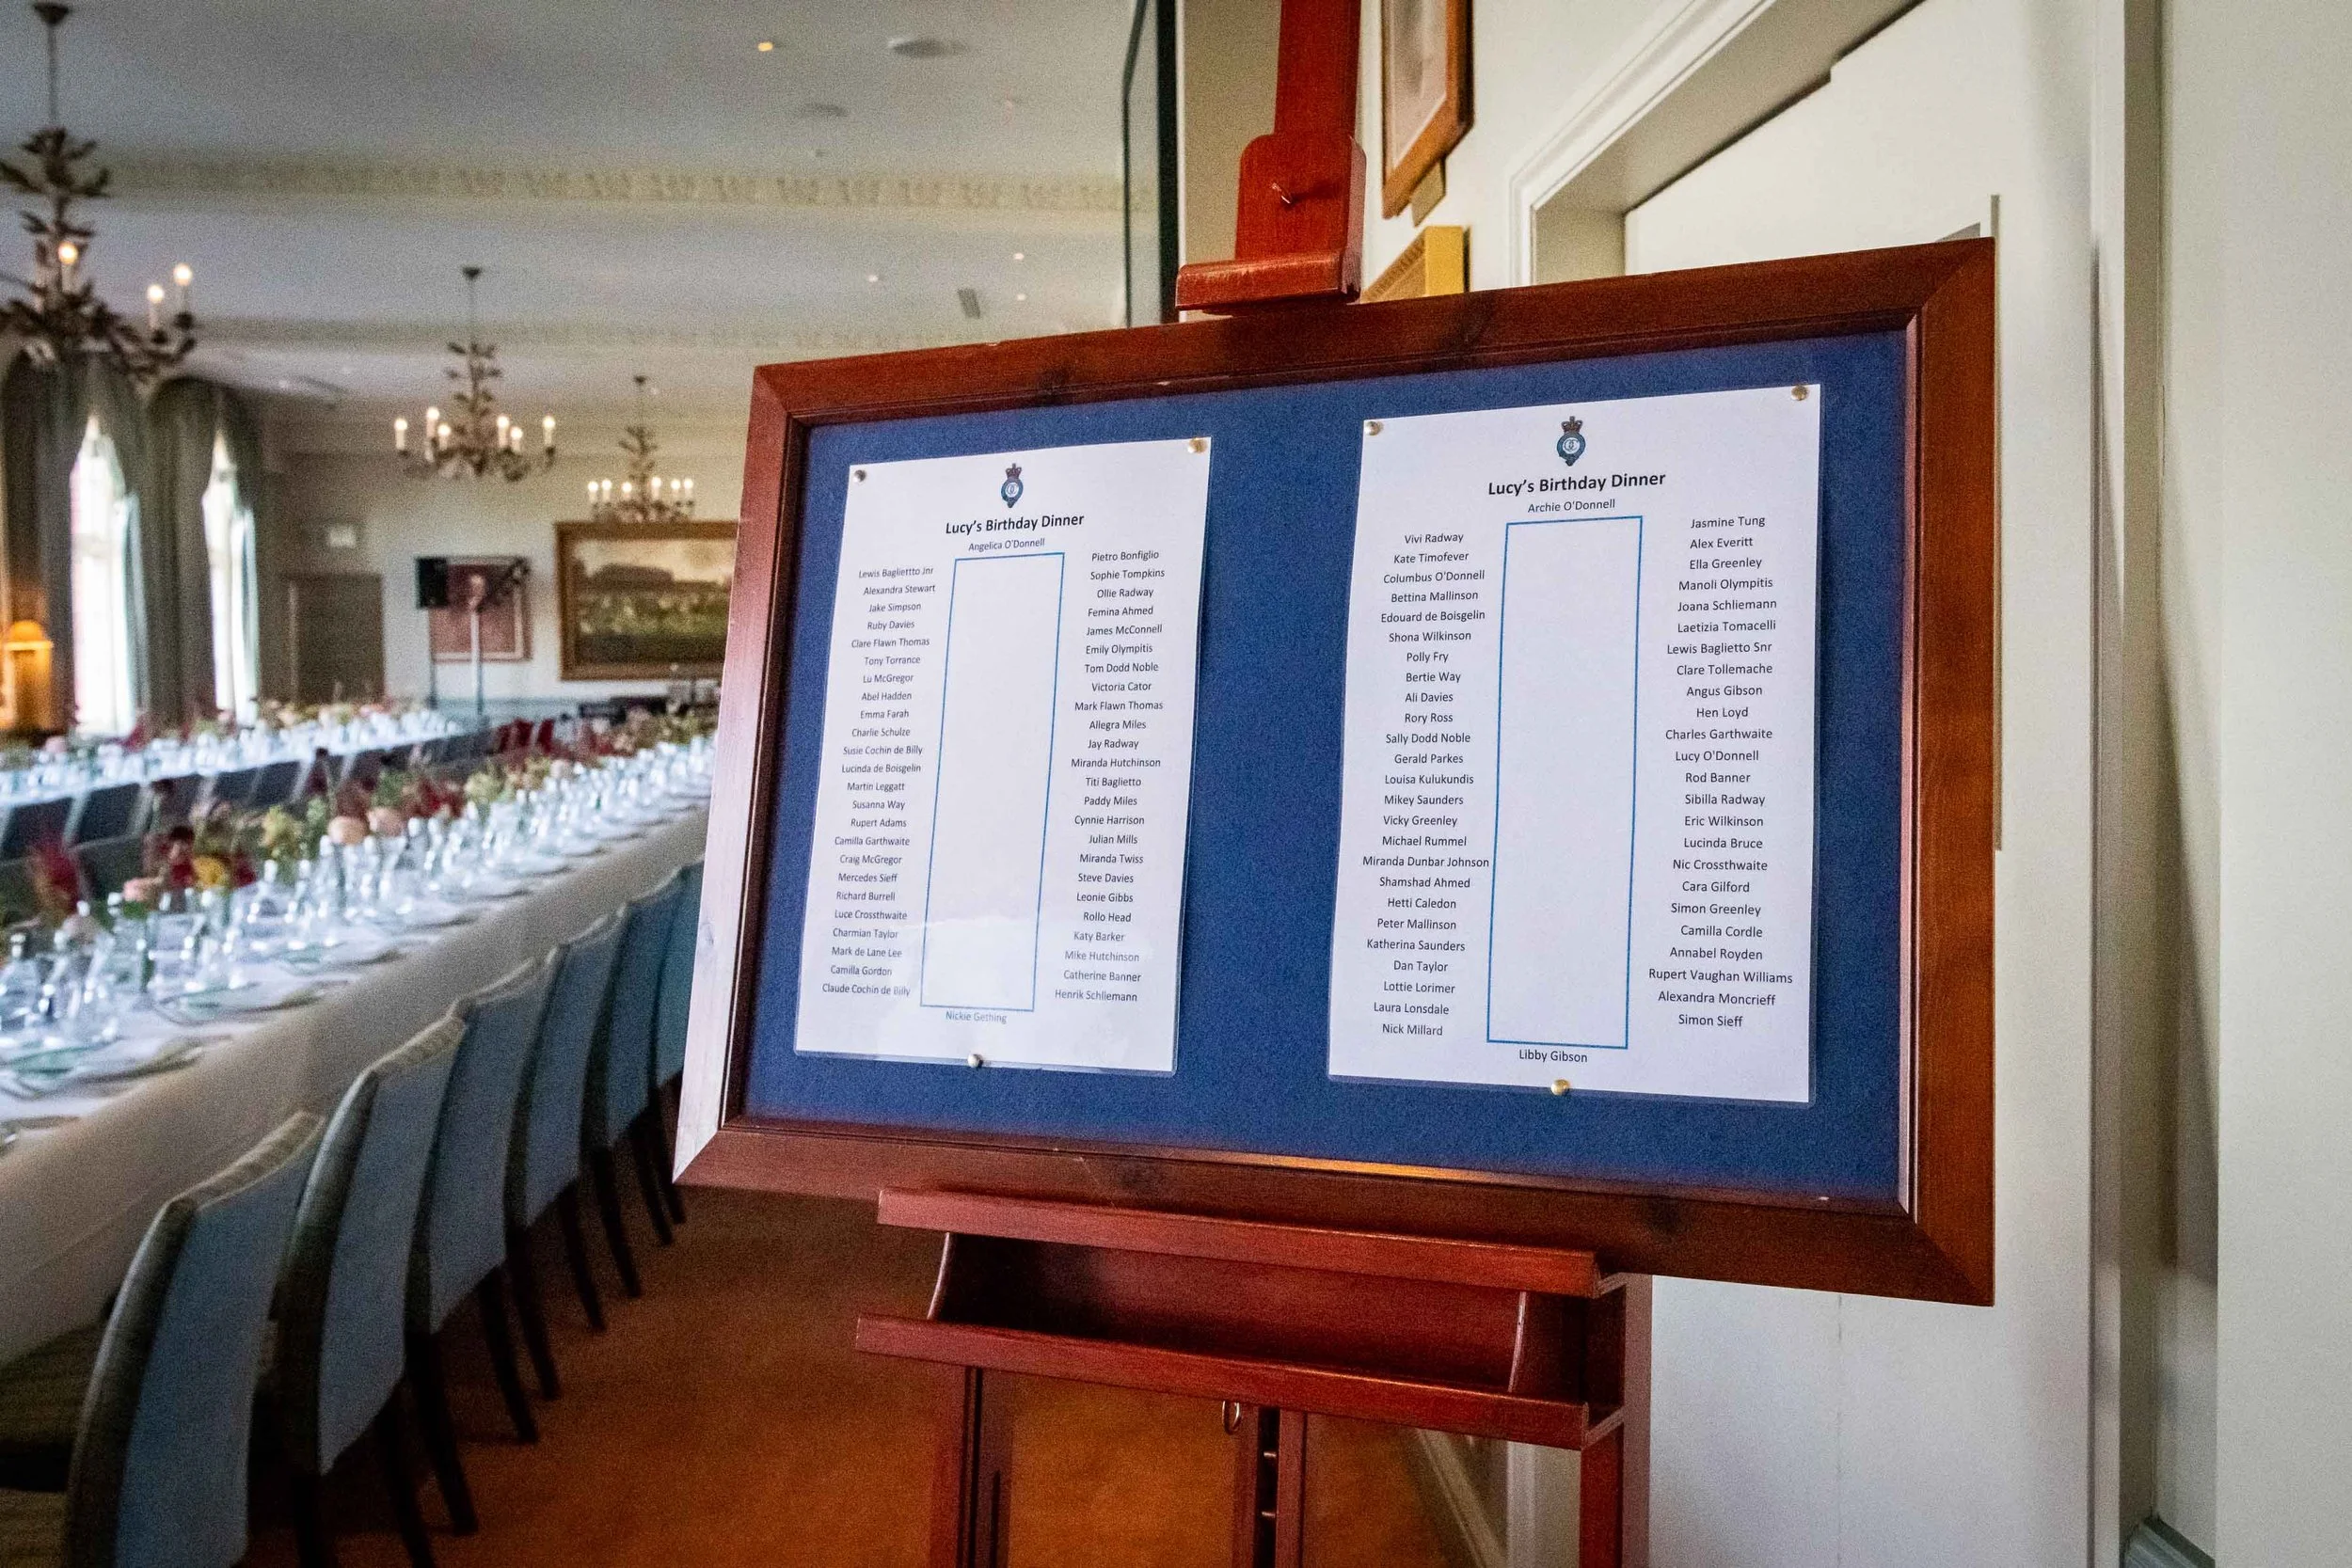 Lucy's Birthday Dinner
Angelica O'Donnell
Lewis Bagliettto Jnr
Alexandra Stewart
Jake Simpson
Ruby Davies
Clare Flawn Thomas
Tony Torrance
Lu McGregor
Abel Hadden
Emma Farah
Charlie Schulze
Susie Cochin de Billy
Lucinda de Boisgelin
Martin Leggatt
Susanna Way
Rupert Adams
Camilla Garthwaite
Craig McGregor
Mercedes Sieff
Richard Burrell
Luce Crossthwaite
Charmian Taylor
Mark de Lane Lee
Camilla Gordon
Claude Cochin de Billy
Pietro Bonfiglio
Sophie Tompkins
Ollie Radway
Femina Ahmed
James McConnell
Emily Olympitis
Tom Dodd Noble
Victoria Cator
Mark Flawn Thomas
Allegra Miles
Jay Radway
Miranda Hutchinson
Titi Baglietto
Paddy Miles
Cynnie Harrison
Julian Mills
Miranda Twiss
Steve Davies
Leonie Gibbs
Rollo Head
Katy Barker
Mike Hutchinson
Catherine Banner
Henrik Schliemann
Nickie Gething
Lucy's Birthday Dinner
Archie O'Donnell
Vivi Radway
Kate Timofever
Columbus O'Donnell
Bettina Mallinson
Edouard de Boisgelin
Shona Wilkinson
Polly Fry
Bertie Way
Ali Davies
Rory Ross
Sally Dodd Noble
Gerald Parkes
Louisa Kulukundis
Mikey Saunders
Vicky Greenley
Michael Rummel
Miranda Dunbar Johnson
Shamshad Ahmed
Hetti Caledon
Peter Mallinson
Katherina Saunders
Dan Taylor
Lottie Lorimer
Laura Lonsdale
Nick Millard
Jasmine Tung
Alex Everitt
Ella Greenley
Manoli Olympitis
Joana Schliemann
Laetizia Tomacelli
Lewis Baglietto Snr
Clare Tollemache
Angus Gibson
Hen Loyd
Charles Garthwaite
Lucy O'Donnell
Rod Banner
Sibilla Radway
Eric Wilkinson
Lucinda Bruce
Nic Crossthwaite
Cara Gilford
Simon Greenley
Camilla Cordle
Annabel Royden
Rupert Vaughan Williams
Alexandra Moncrieff
Simon Sieff
Libby Gibson